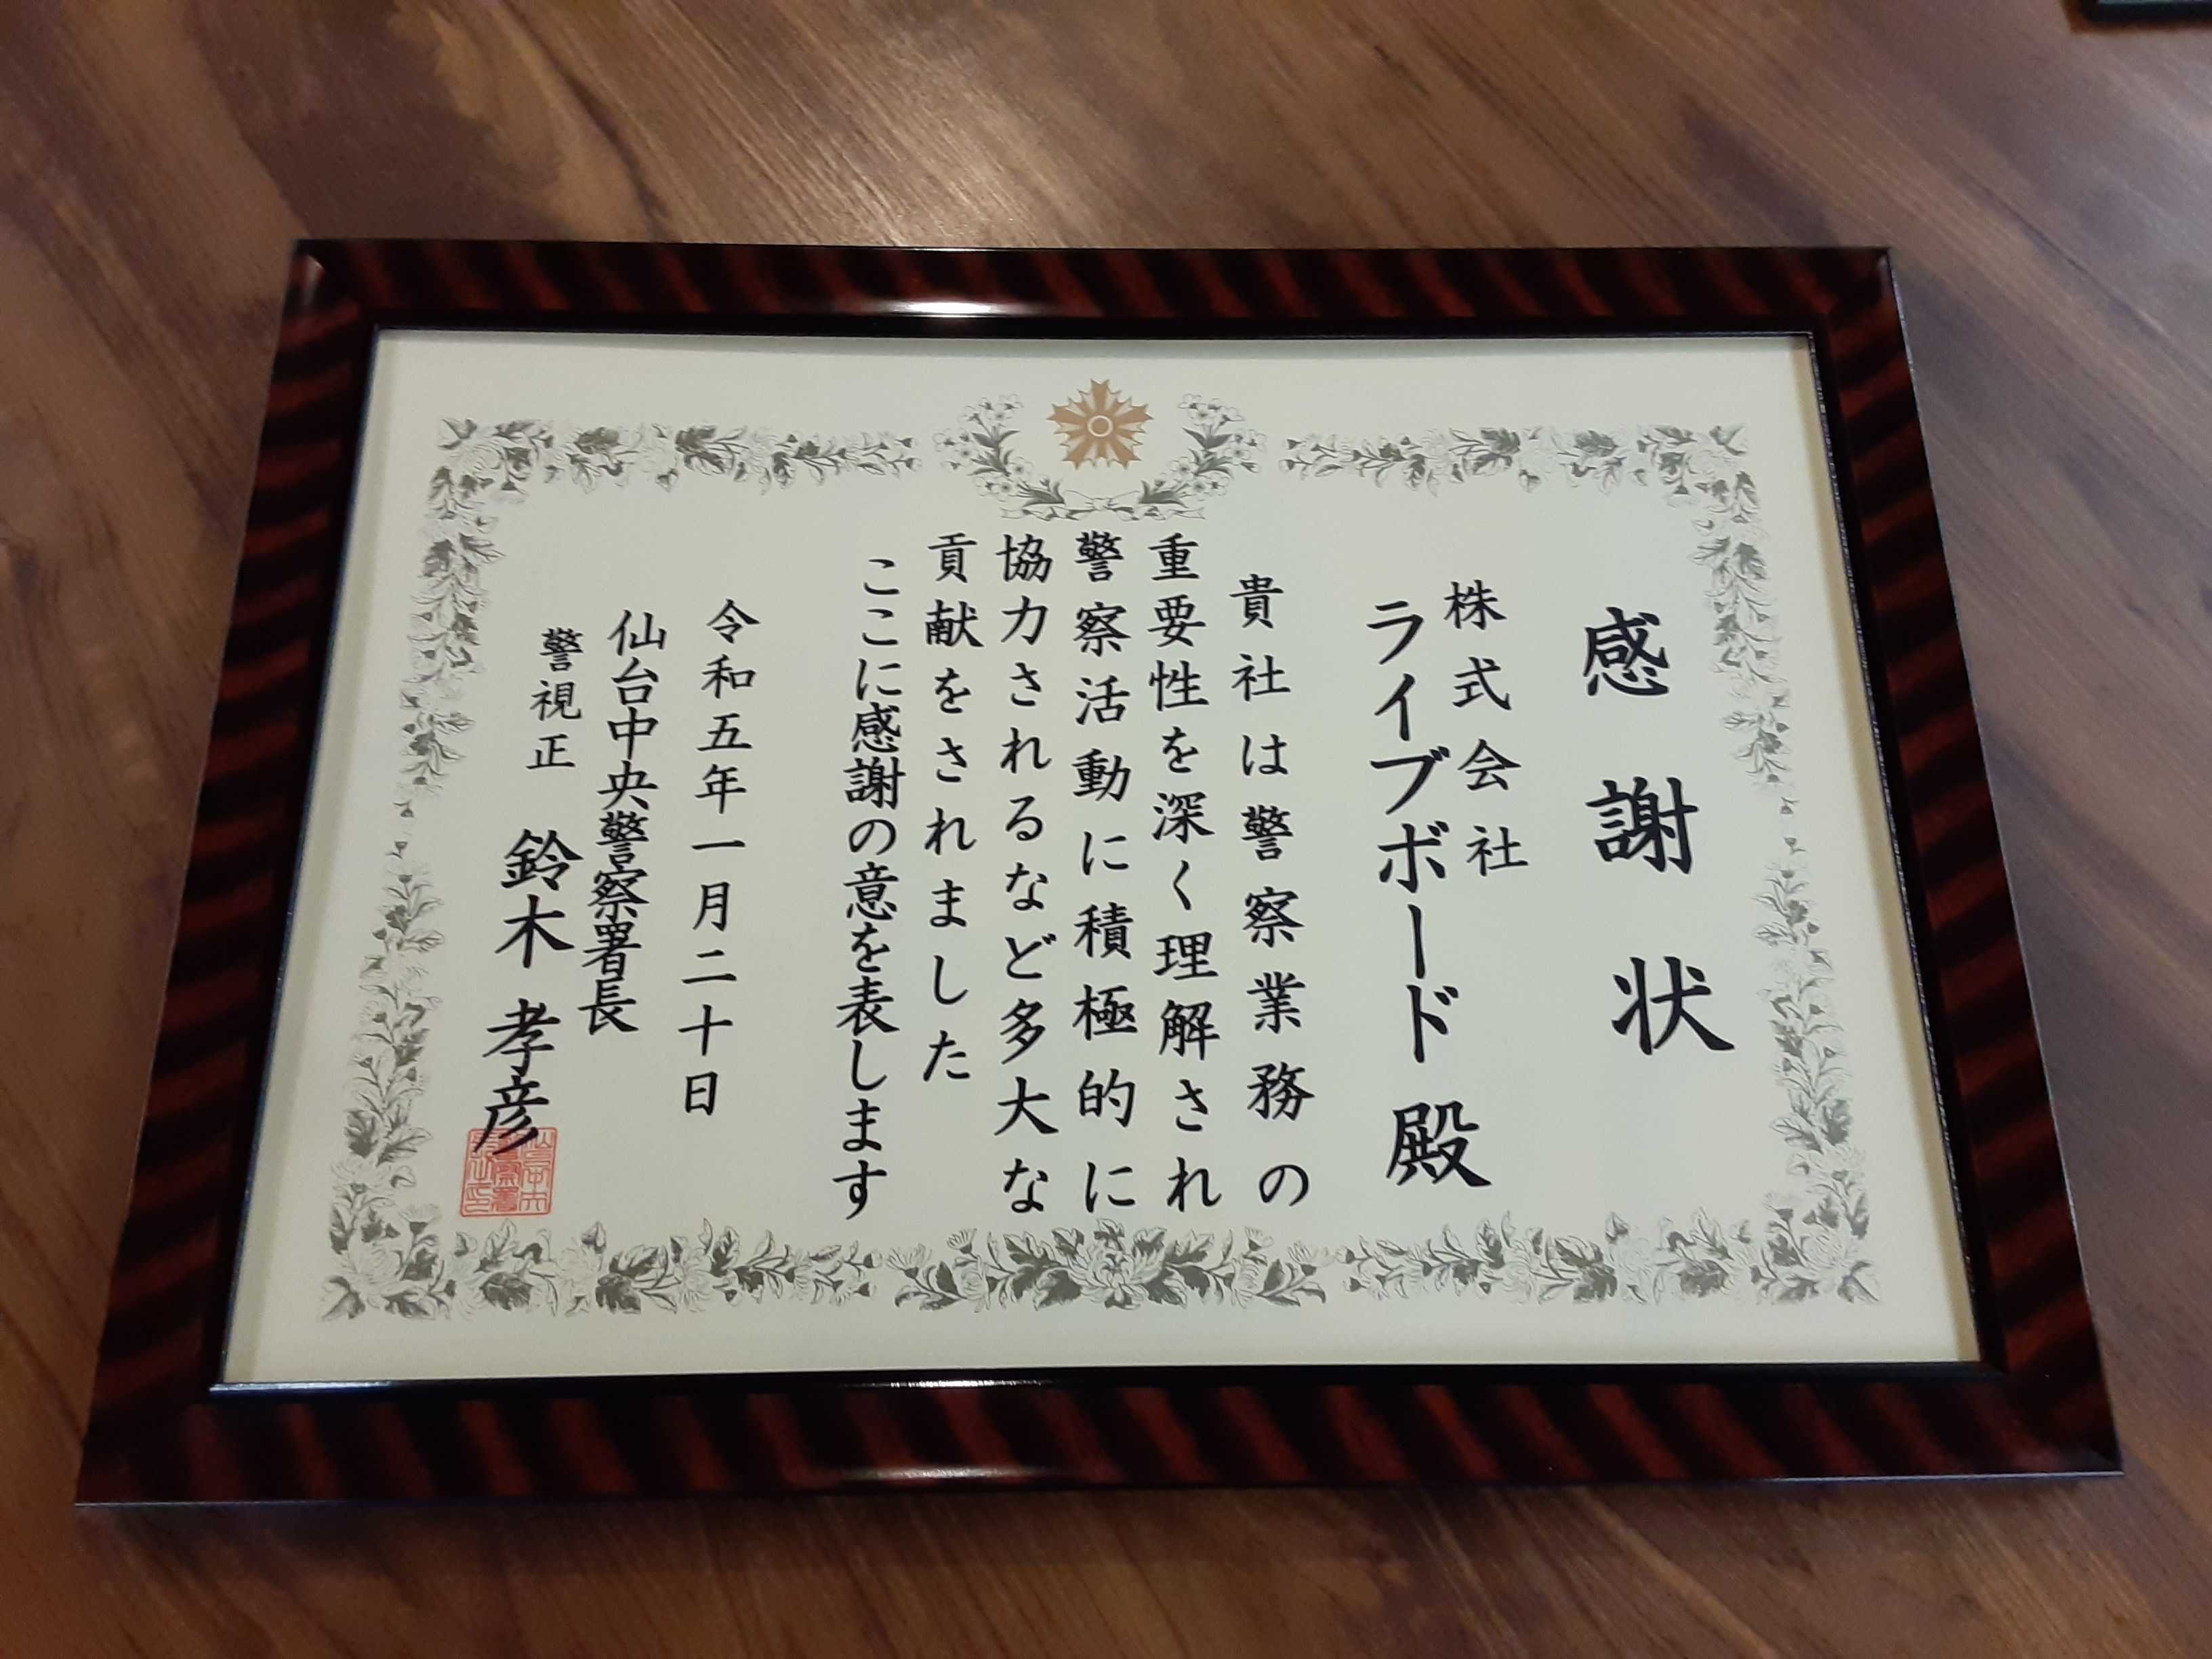 感謝状
株式会社
ライブボード殿
貴社は警察業務の
重要性を深く理解され
警察活動に積極的に
協力されるなど多大な
貢献をされました
ここに感謝の意を表します
令和五年一月二十日
仙台中央警察署長
警視正 鈴木孝彦